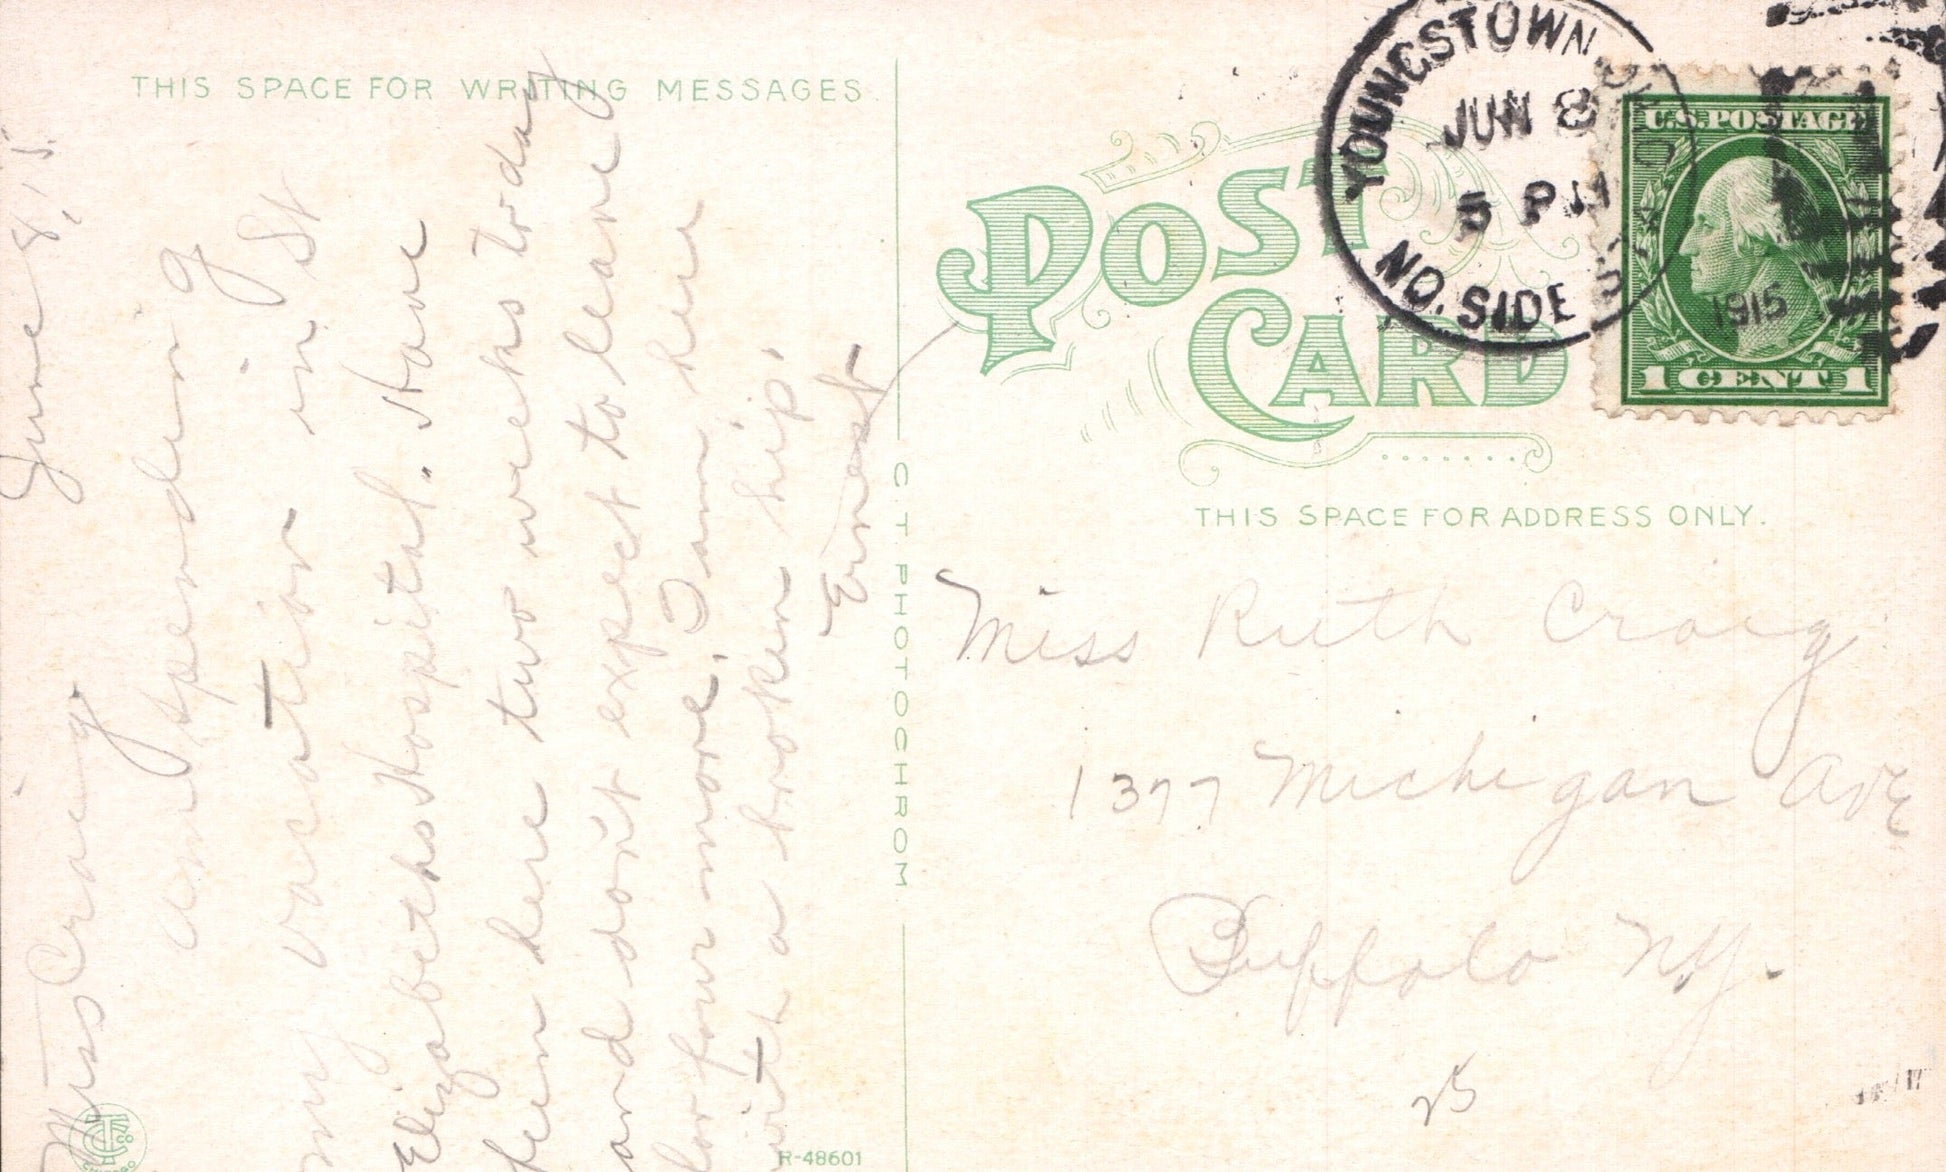 THIS SPACE FOR WRITING MESSAGES.
June 8, 15.
Miss Craig
am spending
my vacation in St
Elizabeths Hospital. Have
been here two weeks today
and don't expect to leave
for four more. I am here
with a broken hip.
Ernest
C.T. PHOTOCHROM
R-48601
CTCO
CHICAGO
POST
CARD
YOUNGSTOWN OHIO
JUN 8
5 PM
1915
NO. SIDE
U.S. POSTAGE
1 CENT 1
THIS SPACE FOR ADDRESS ONLY.
Miss Ruth Craig
1377 Michigan Ave
Buffalo NY.